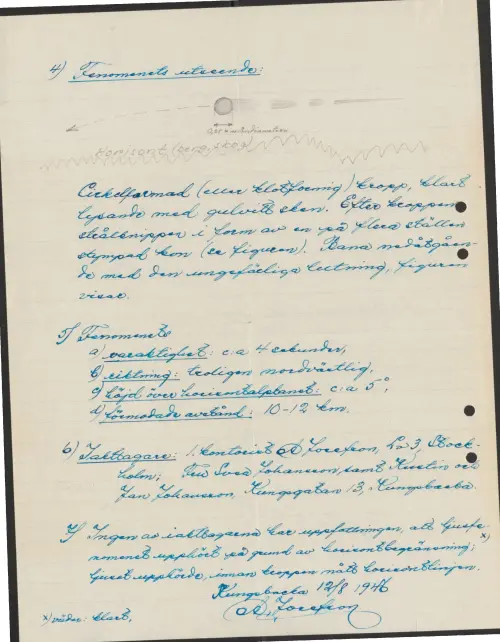 4) Fenomenets utseende:
Horisont (berg, skog)
Cirkelformad (eller klotformig) kropp, klart
lysande med gulvitt sken. Efter kroppen
strålknippen i form av en på flera ställen
stympad kon (se figuren). Bana nedåtgåen-
de med den ungefärliga lutning, figuren
visar.
5) Fenomenets
a) varaktighet: c:a 4 sekunder,
b) riktning: troligen nordvästlig,
c) höjd över horisontalplanet: c:a 5°,
d) förmodade avstånd: 10-12 km.
6) Iakttagare: 1. kontorist A Josefson, Lv 3, Stock-
holm; Fru Svea Johansson, samt Kerstin och
Jan Johansson, Kungsgatan 13, Kungsbacka.
7) Ingen av iakttagarna har uppfattningen, att ljusfe-
nomenet upphört på grund av horisontbegränsning; x)
ljuset upphörde, innan kroppen nått horisontlinjen.
Kungsbacka 12/8 1946
A. Josefson
x) väder: klart,